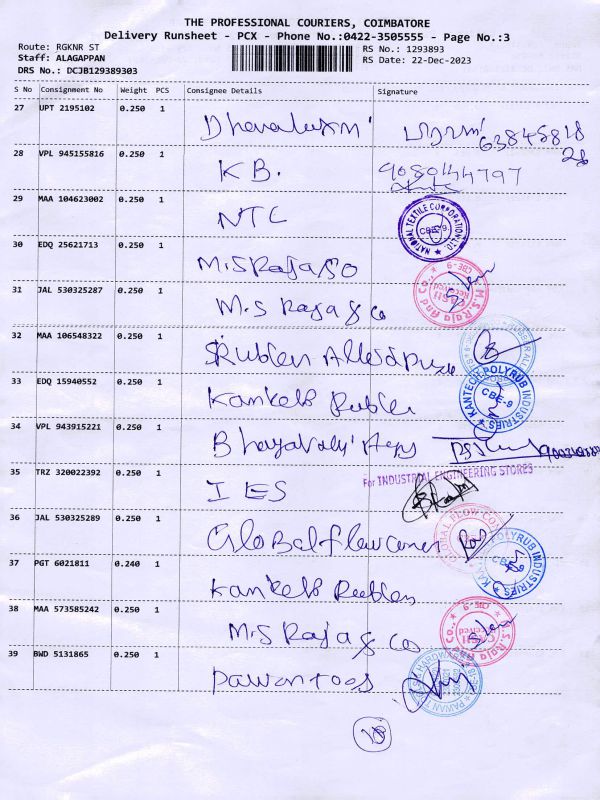 THE PROFESSIONAL COURIERS, COIMBATORE
Delivery Runsheet - PCX - Phone No.:0422-3505555 - Page No.:3
Route: RGKNR ST RS No.: 1293893
Staff: ALAGAPPAN RS Date: 22-Dec-2023
DRS No.: DCJB129389303
S No Consignment No Weight PCS Consignee Details Signature
27 UPT 2195102 0.250 1
Dhanalaxmi 63845818
28
28 VPL 945155816 0.250 1
KB. 9080144797
29 MAA 104623002 0.250 1
NTC NATIONAL TEXTILE CORPORATION LTD. CBE-9
30 EDQ 25621713 0.250 1
M.S Raja & Co
31 JAL 530325287 0.250 1
M.S Raja & Co M.S. Raja And Co., CBE-9
32 MAA 106548322 0.250 1
Rubber
33 EDQ 15940552 0.250 1
Rubber KANTECH POLYRUB INDUSTRIES CBE-9
34 VPL 943915221 0.250 1
35 TRZ 320022392 0.250 1
For INDUSTRIAL ENGINEERING STORES
IES
36 JAL 530325289 0.250 1
Global flow
37 PGT 6021811 0.240 1
POLYRUB INDUSTRIES CBE-9
38 MAA 573585242 0.250 1
M.S Raja & Co M.S. Raja And Co., CBE-9
39 BWD 5131865 0.250 1
Pawan Toos